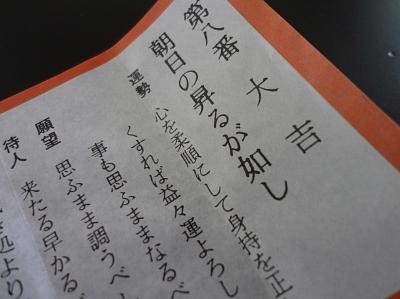 第八番 大吉
朝日の昇るが如し
運勢
心を柔順にして身持を正
くすれば益々運よろし
事も思ふままなるべ
願望
思ふまま調うべし
待人
来たる早かるべ
近より